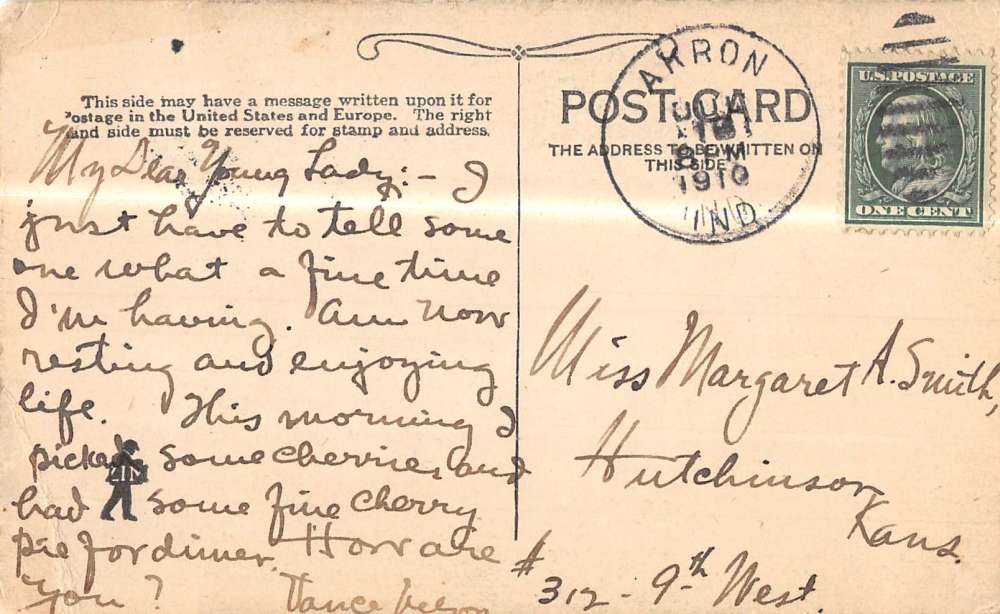 This side may have a message written upon it for
Postage in the United States and Europe. The right
hand side must be reserved for stamp and address.
My Dear Young Lady:- I
just have to tell some
one what a fine time
I'm having. Am now
resting and enjoying
life. This morning I
picked some cherries, and
had some fine cherry
pie for dinner. How are
you?
Vance
POST CARD
THE ADDRESS TO BE WRITTEN ON
THIS SIDE
ARRON
8 PM
1910
IND
U.S. POSTAGE
ONE CENT
Miss Margaret A. Smith,
Hutchinson
Kans.
# 312 - 9th West